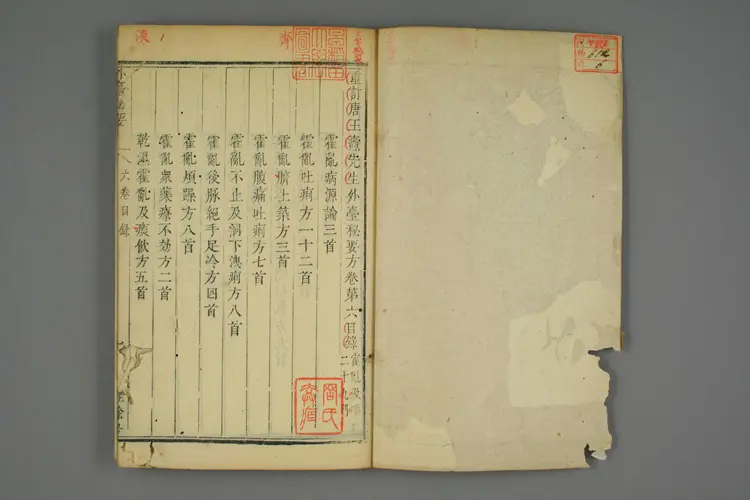 重訂唐王燾先生外臺秘要方卷第六目錄 霍亂及嘔吐二十九門
霍亂病源論三首
霍亂吐痢方一十二首
霍亂臍上築方三首
霍亂腹痛吐痢方七首
霍亂不止及洞下洩痢方八首
霍亂後脉絕手足冷方四首
霍亂煩躁方八首
霍亂衆藥療不効方二首
乾濕霍亂及痰飲方五首
外臺秘要
六卷目錄